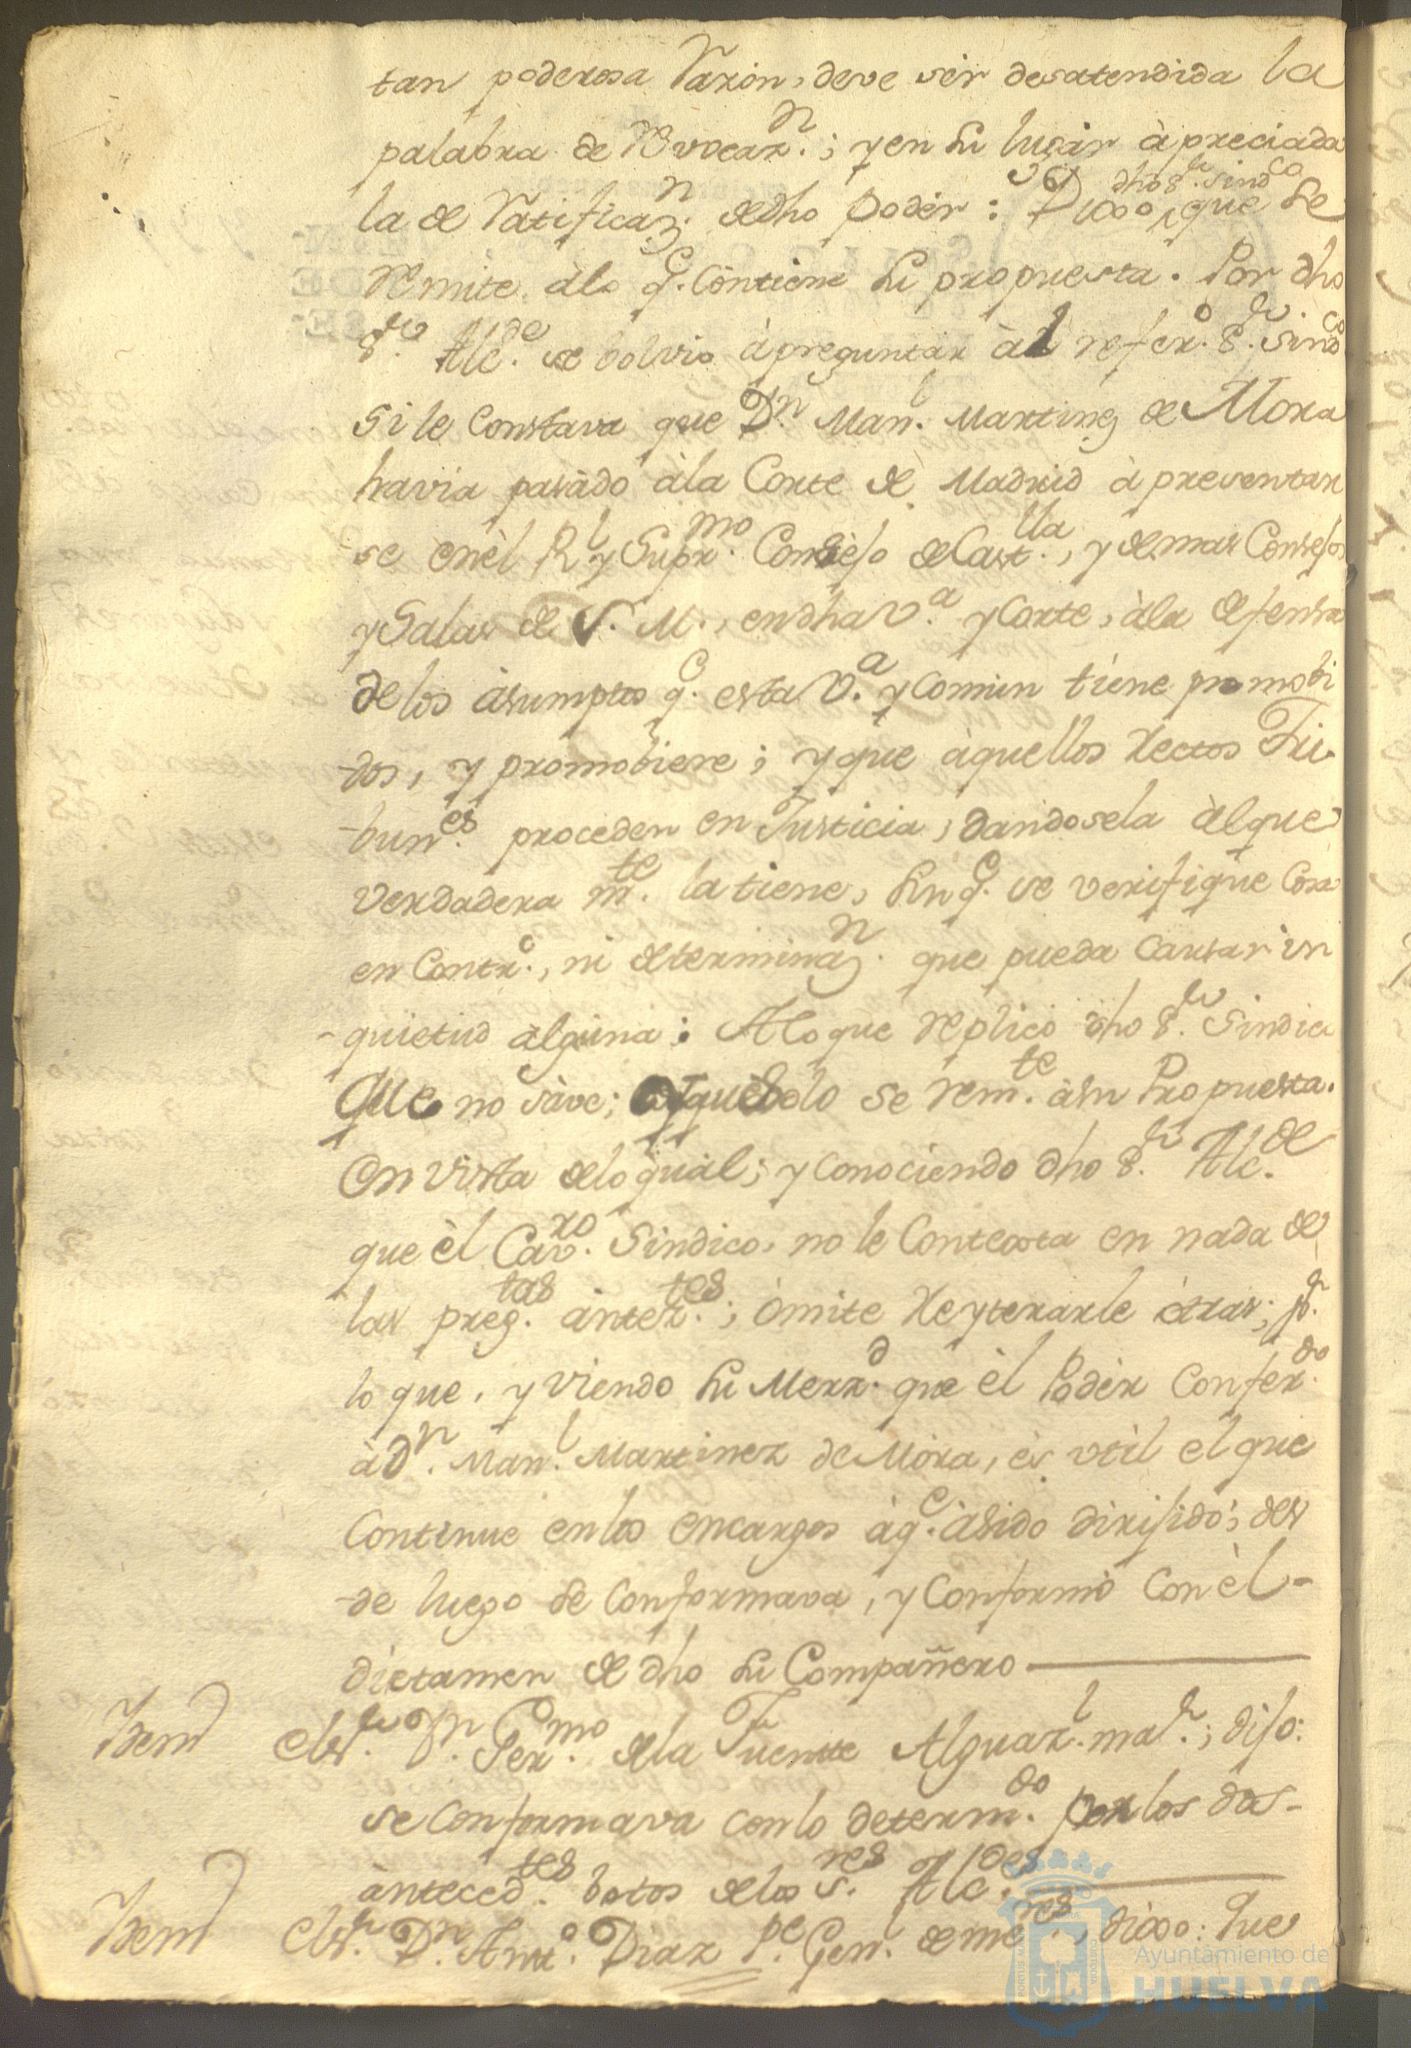 tan poderosa Razon, deve ser desatendida la
palabra de Rvocaz.n; y en su lugar àpreciada
la de Ratificaz.n de dho Poder: Dixo dho S.r Sind.co que se
remite àlo q.e Contiene su propuesta. Por dho
S.r Alc.de se bolvio àpreguntar àl refer.o S.r Sind.co
si le Constava que D.n Man.l Martinez de Mora
havia pasàdo àla Corte de Madrid à presentar
se en èl R.l y Supr.mo Consèjo de Cast.lla, y demas Consejos
y Salas de S. M., en dha V.a y Corte, àla defensa
de los àsumptos q.e esta V.a y Comun tiene promobi
dos, y promobiere; y que àquellos Rectos Tri-
-bun.es proceden en Justicia, dandosela àl que
verdadera m.te la tiene, sin q.e se verifique Cosa
en Contr.o, ni determinaz.n que pueda Causar in
-quietud alguna: A lo que replicó dho S.r Sindico
Que no sàve; que solo se rem.te à su Propuesta.
En vista de lo qual; y conociendo dho S.r Alc.de
que èl Cav.ro Sindico, no le Contexta en nada de
las preg.tas ànter.tes; òmite Reyterarle òtras; p.r
lo que, y viendo su Merz.d que èl Podèr Confer.do
à D.n Man.l Martinez de Mora, es util el que
Continue en los encargos à q.e à sido dirijido; des
-de luego se Conformava, y Conformó Con èl-
dictamen de dho su Compañero
Item El S.r D.n Ger.mo de la Fuente Alguaz.l ma.r; dijo:
se Conformava con lo determ.do por los dos-
ànteced.tes botos de los S.res Alc.des
Item El S.r D.n Ant.o Diaz P.e Gen.l de me.res, dixo: Que
Ayuntamiento de
HUELVA